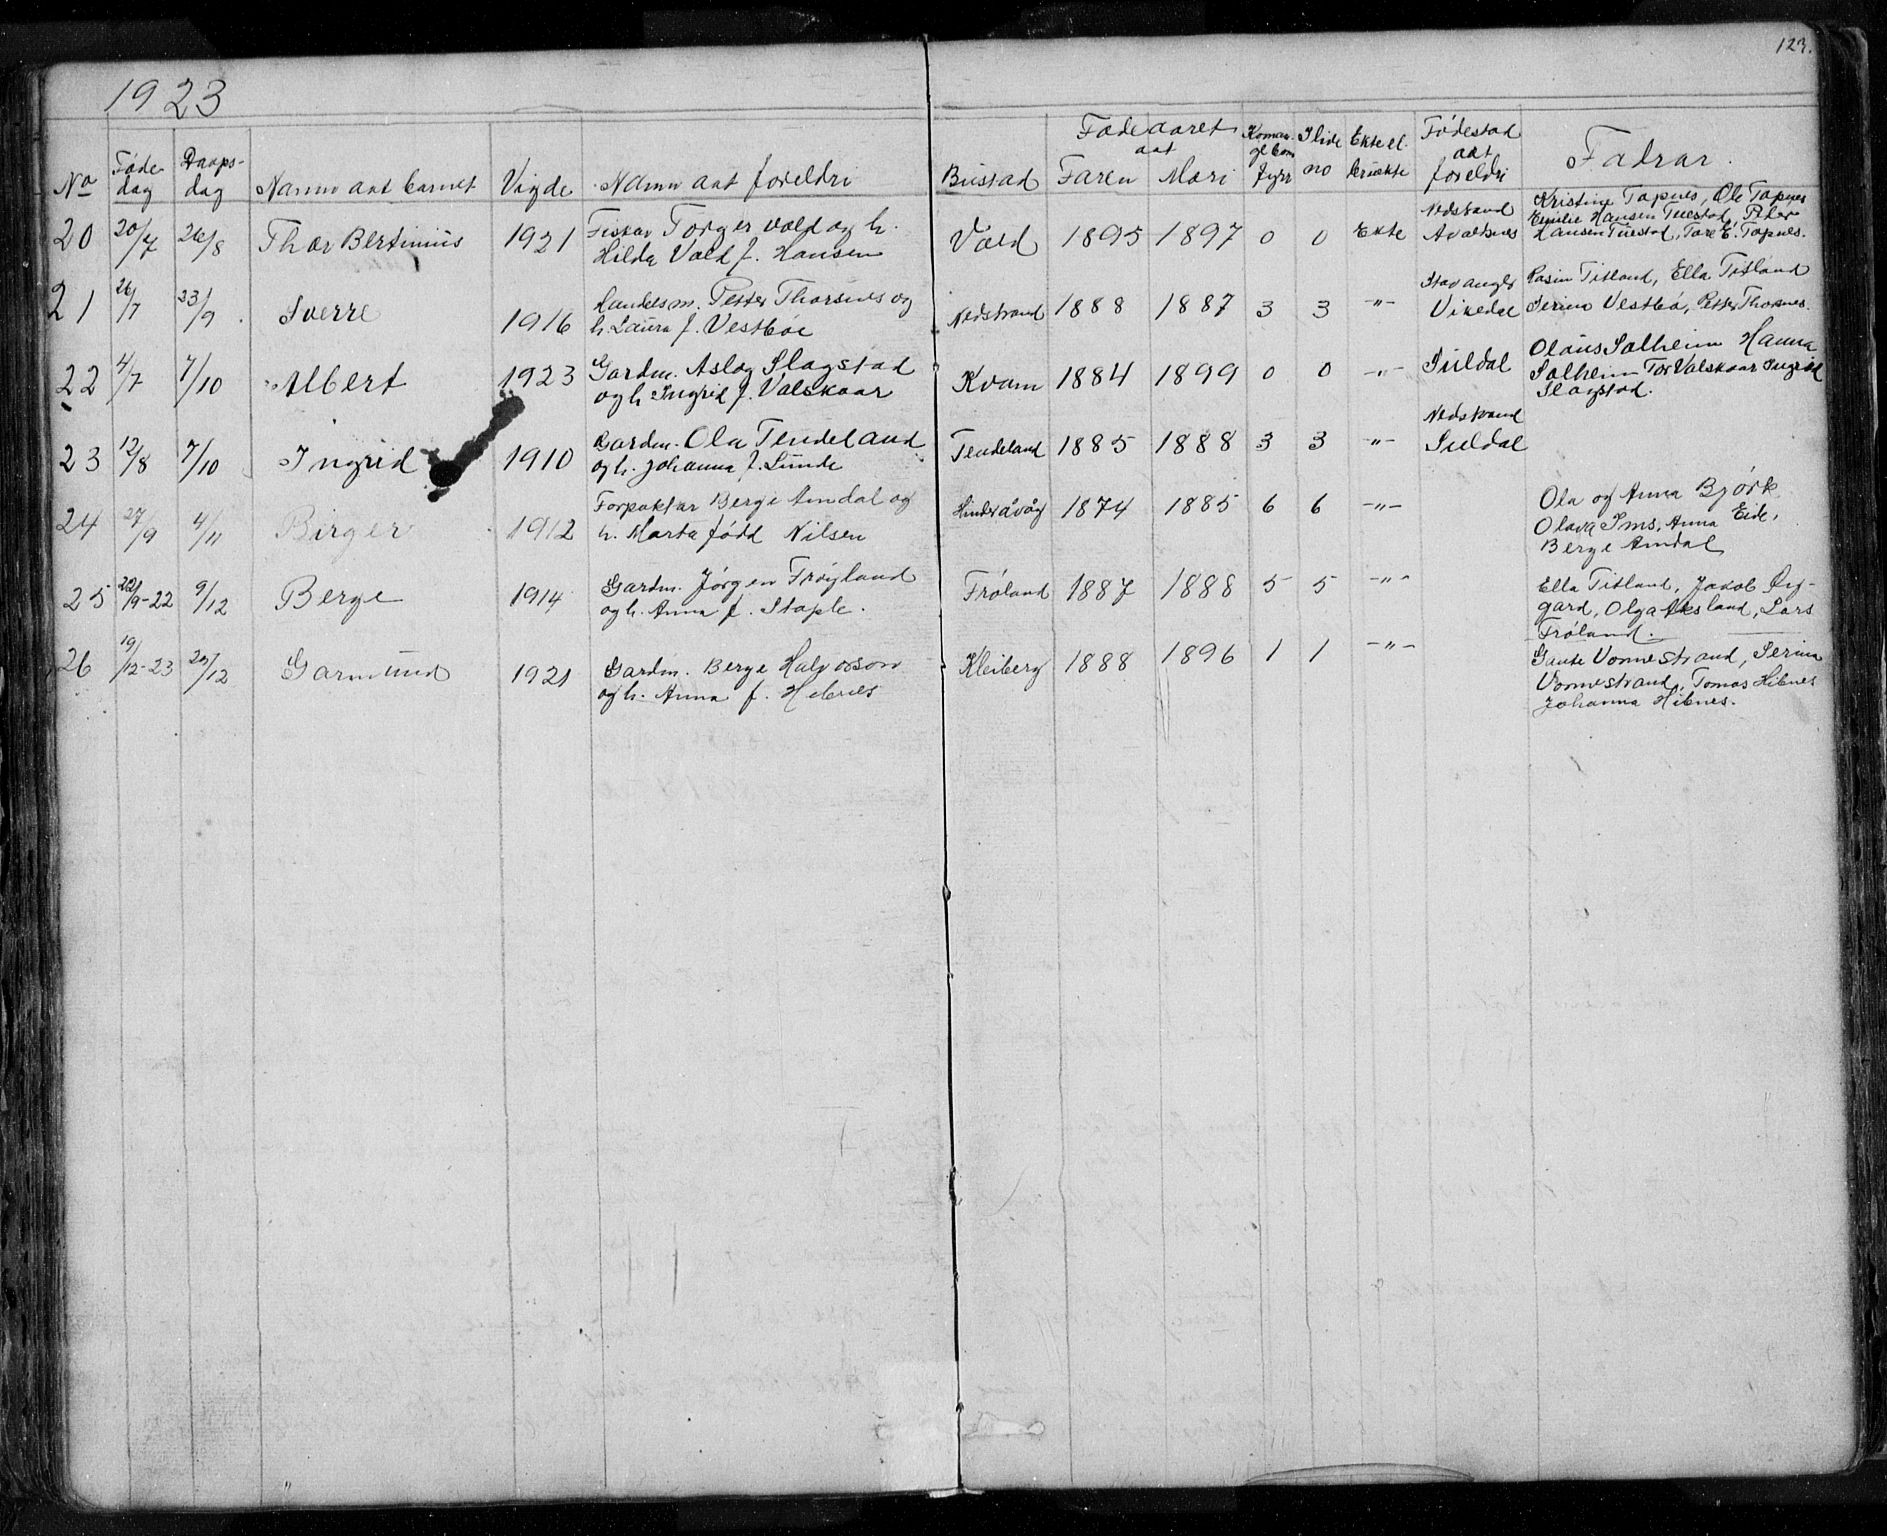 123.
1923
No Føde dag Daaps- dag Namn aat barnet Vigde Namn aat foreldri Bustad Fødeaaret aat Faren Mori fyrr Ilive no Ekte el. uekte Fødestad aat foreldri Fadrar.
20 20/7 26/8 Thor Bertinius 1921 Fiskar Torger Vald og h. Vald 1895 1897 0 0 Ekte Nedstrand Kristine Tapnes, Ole Tapnes
Hilda Vald f. Hansen Avaldsnes Emilie Hansen Tuestad, Peter
Hansen Tuestad, Tore E. Tapnes.
21 26/7 23/9 Sverre 1916 Handelsm. Petter Thorsnes og Nedstrand 1888 1887 3 3 -"- Stavanger Rasin Titland, Ella Titland
h. Laura f. Vestbøe Vikedal Serina Vestbø, Petter Thorsnes.
22 4/7 7/10 Albert 1923 Gardm. Aslag Slagstad Kvam 1884 1899 0 0 -"- Suldal Olaus Solheim Hanna
og h. Ingrid f. Valskaar Solheim Tor Valskaar Ingrid
Slagstad.
23 12/8 7/10 Ingrid 1910 Gardm. Ola Tendeland Tendeland 1885 1888 3 3 -"- Nedstrand
og h. Johanna f. Lunde Suldal
24 27/9 4/11 Birger 1912 Forpaktar Berge Amdal og Hinderåvåg 1874 1885 6 6 -"- Ola og Anna Bjørk
h. Marta fødd Nilsen Olava Ims, Anna Eide,
Berge Amdal
25 22/9-22 9/12 Berge 1914 Gardm. Jørgen Frøyland Frøland 1887 1888 5 5 -"- Ella Titland, Jakob Øy-
og h. Anna f. Stople. gard, Olga Aksland, Lars
Frøland.
26 19/12-23 27/12 Garmund 1921 Gardm. Berge Halvorson Kleiberg 1888 1896 1 1 -"- Gaute Vormestrand, Serina
og h. Anna f. Hebnes Vormestrand, Tomas Hibnes
Johanna Hibnes.